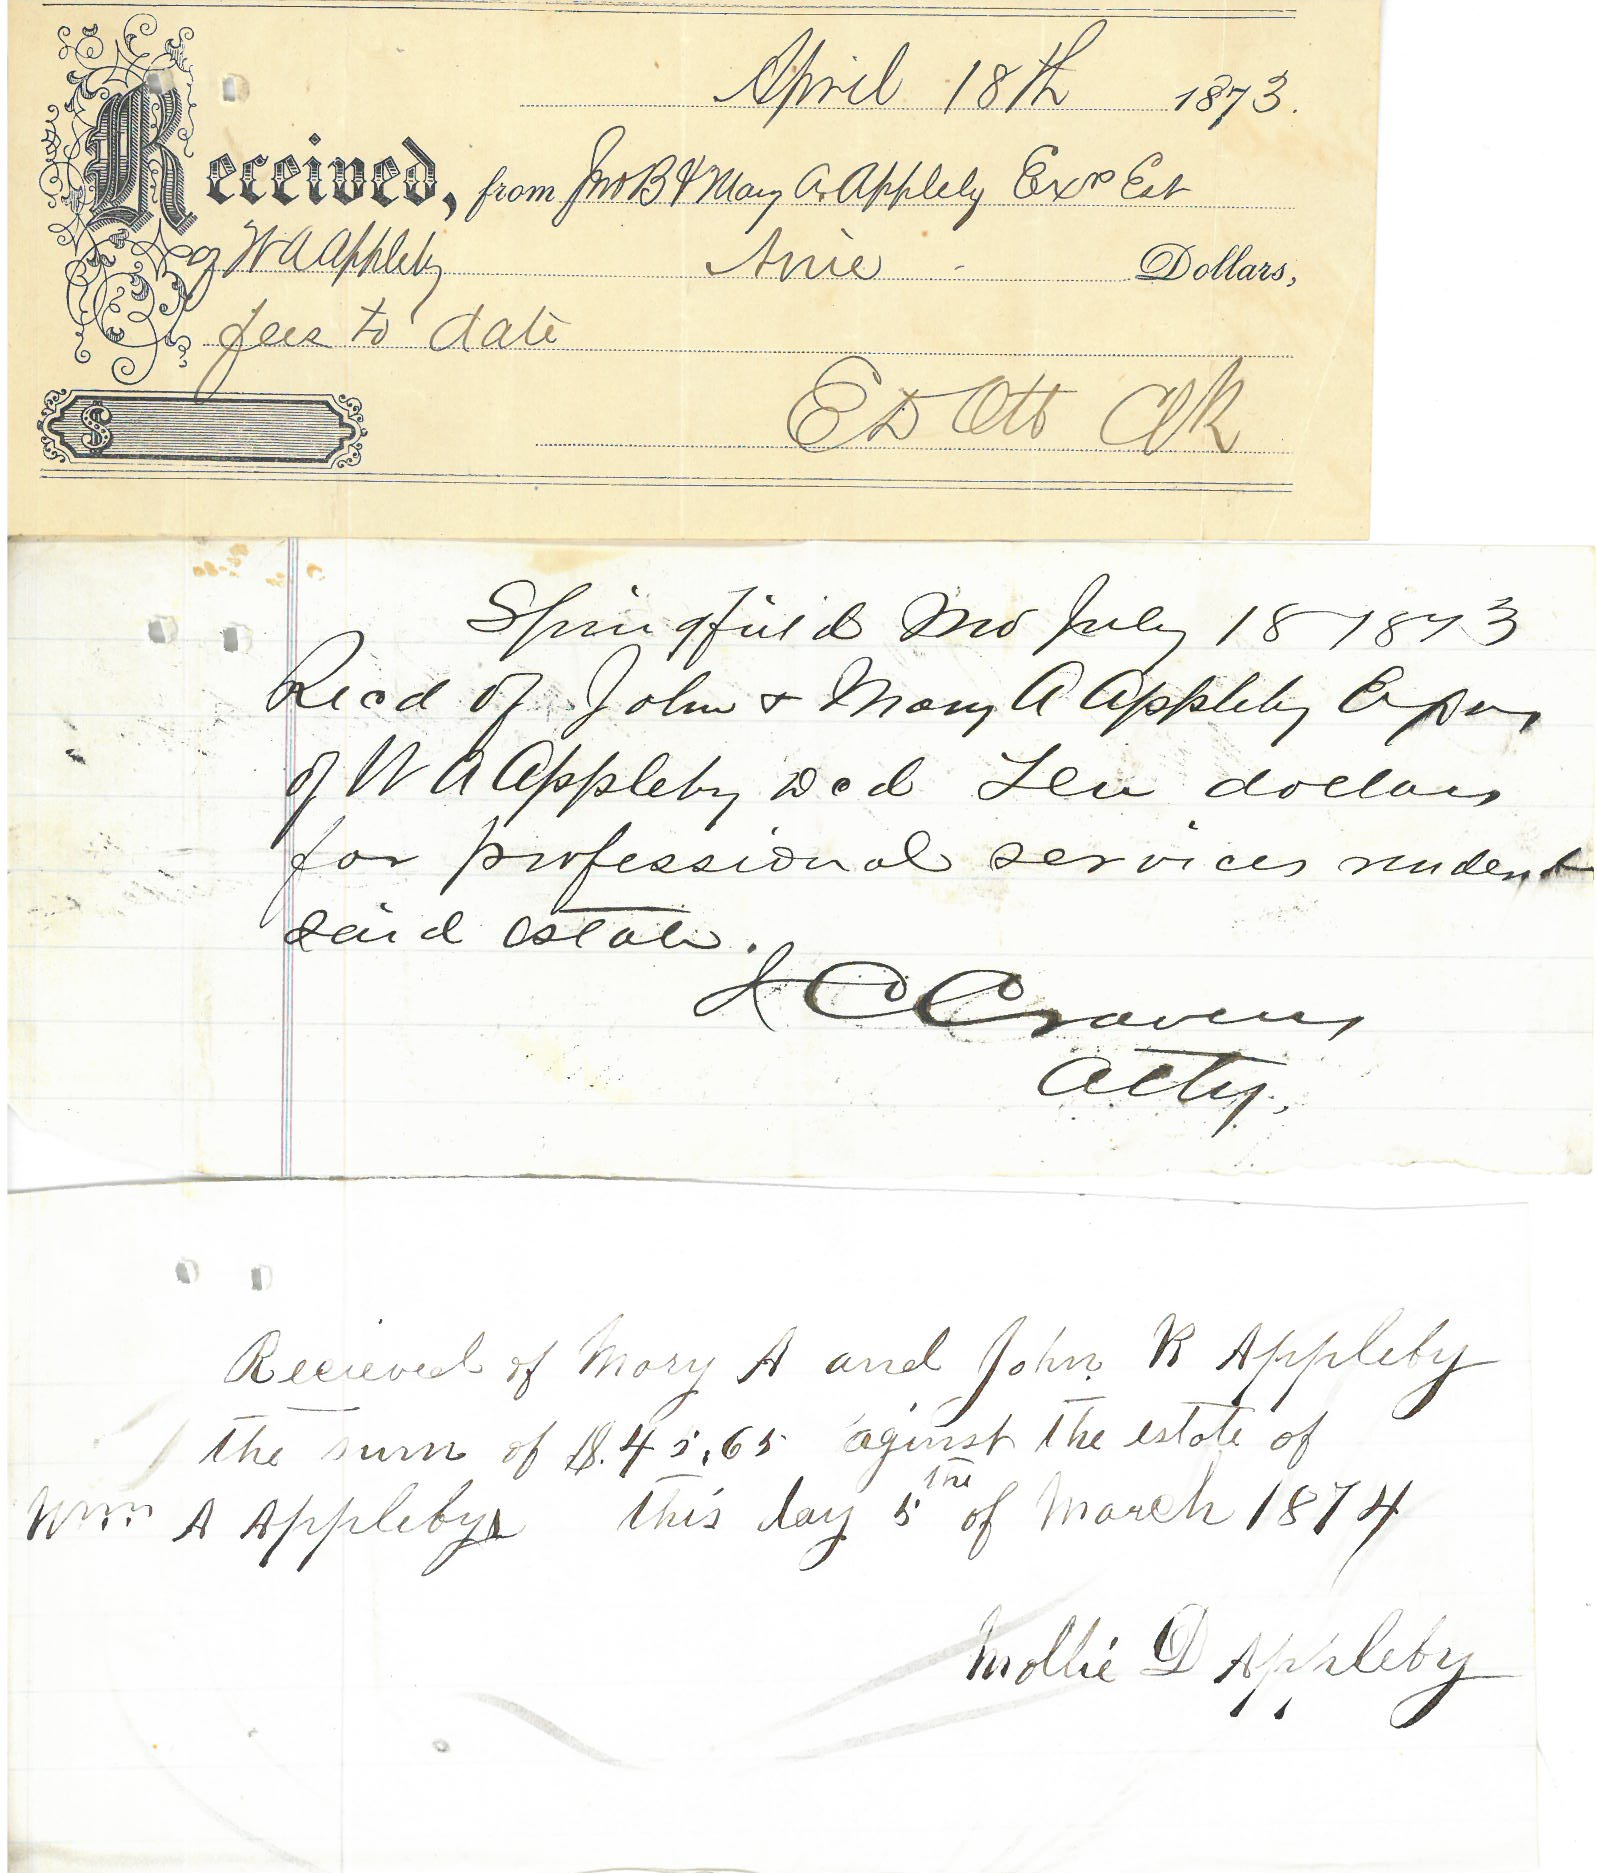 April 18th 1873.
Received, from Jno B & Mary A. Appleby Exrs Est
of W A Appleby Dollars,
fees to date
$ Ed Otto Clk
Springfield Mo July 18 1873
Recd of John & Mary A Appleby Exrs
of W A Appleby Decd Ten dollars
for professional services renderd
said estate.
J C Cravens
Atty.
Recieved of Mary A and John R Appleby
the sum of $.45.65 aginst the estate of
Wm A Appleby this day 5the of March 1874
Mollie D Appleby